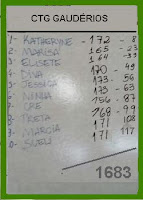 CTG GAUDÉRIOS
1- KATHERYNE - 172 - 8
2- MARISA - 165 - 23
3- ELISETE - 164 - 39
4- DINA - 170 - 49
5- JESSICA - 173 - 56
6- NINHA - 173 - 63
7- CRE - 156 - 87
8- PRETA - 168 - 99
9- MARCIA - 171 108
0- SUELI - 171 117
1683